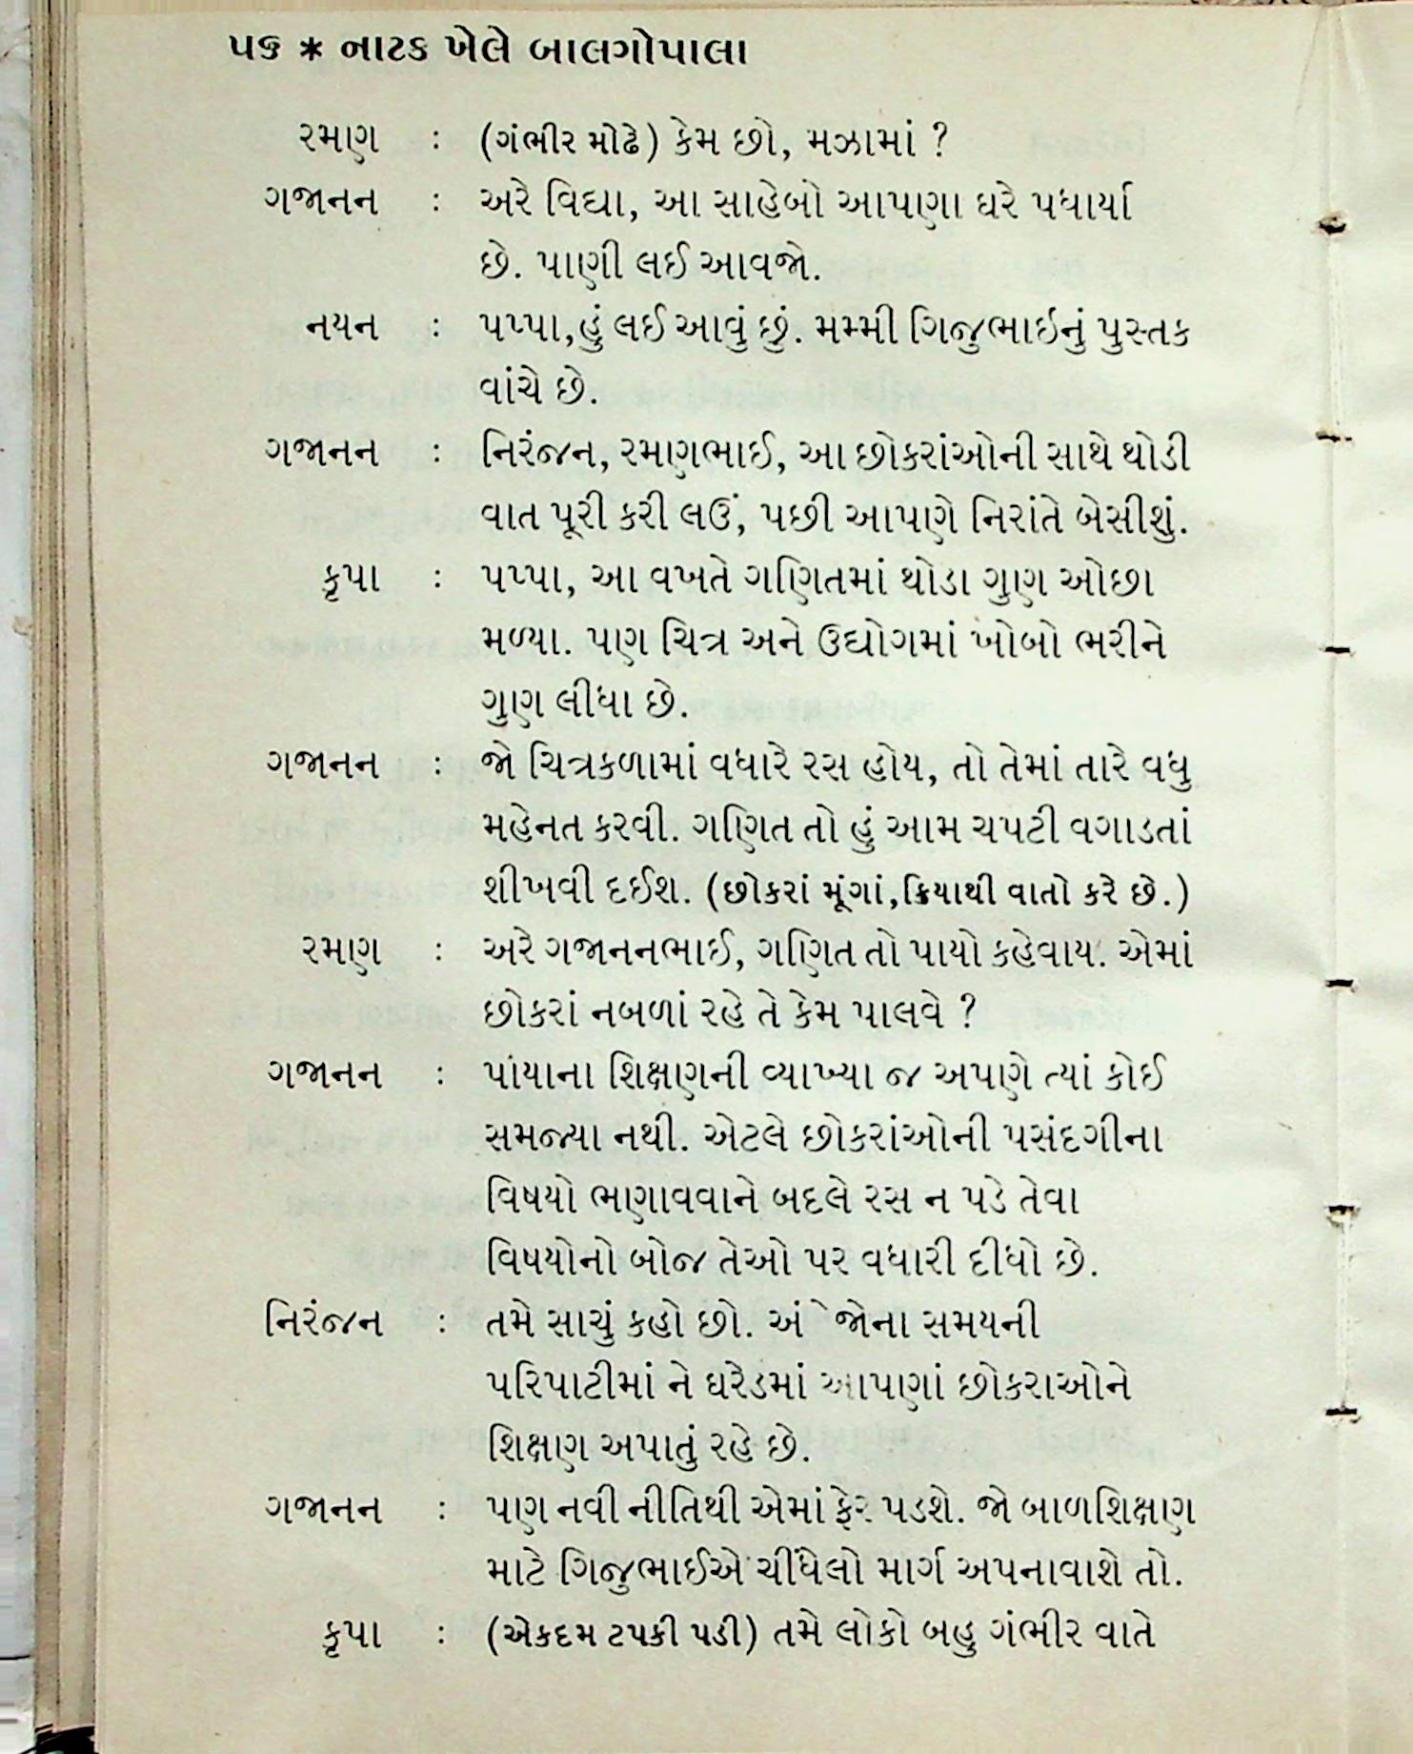 ૫૬ * નાટક ખેલે બાલગોપાલા
રમણ : (ગંભીર મોઢે) કેમ છો, મઝામાં ?
ગજાનન : અરે વિદ્યા, આ સાહેબો આપણા ઘરે પધાર્યા
છે. પાણી લઈ આવજો.
નયન : પપ્પા,હું લઈ આવું છું. મમ્મી ગિજુભાઇનું પુસ્તક
વાંચે છે.
ગજાનન : નિરંજન, રમણભાઈ, આ છોકરાંઓની સાથે થોડી
વાત પૂરી કરી લઉં, પછી આપણે નિરાંતે બેસીશું.
કૃપા : પપ્પા, આ વખતે ગણિતમાં થોડા ગુણ ઓછા
મળ્યા. પણ ચિત્ર અને ઉદ્યોગમાં ખોબો ભરીને
ગુણ લીધા છે.
ગજાનન : જો ચિત્રકળામાં વધારે રસ હોય, તો તેમાં તારે વધુ
મહેનત કરવી. ગણિત તો હું આમ ચપટી વગાડતાં
શીખવી દઈશ. (છોકરાં મૂંગાં,ક્રિયાથી વાતો કરે છે.)
રમણ : અરે ગજાનનભાઈ, ગણિત તો પાયો કહેવાય. એમાં
છોકરાં નબળાં રહે તે કેમ પાલવે ?
ગજાનન : પાયાના શિક્ષણની વ્યાખ્યા જ અપણે ત્યાં કોઈ
સમજ્યા નથી. એટલે છોકરાંઓની પસંદગીના
વિષયો ભણાવવાને બદલે રસ ન પડે તેવા
વિષયોનો બોજ તેઓ પર વધારી દીધો છે.
નિરંજન : તમે સાચું કહો છો. સમયની
પરિપાટીમાં ને ઘરેડમાં આપણાં છોકરાઓને
શિક્ષણ અપાતું રહે છે.
ગજાનન : પણ નવી નીતિથી એમાં ફેર પડશે. જો બાળશિક્ષણ
માટે ગિજુભાઈએ ચીંધેલો માર્ગ અપનાવાશે તો.
કૃપા : (એકદમ ટપકી પડી) તમે લોકો બહુ ગંભીર વાતે